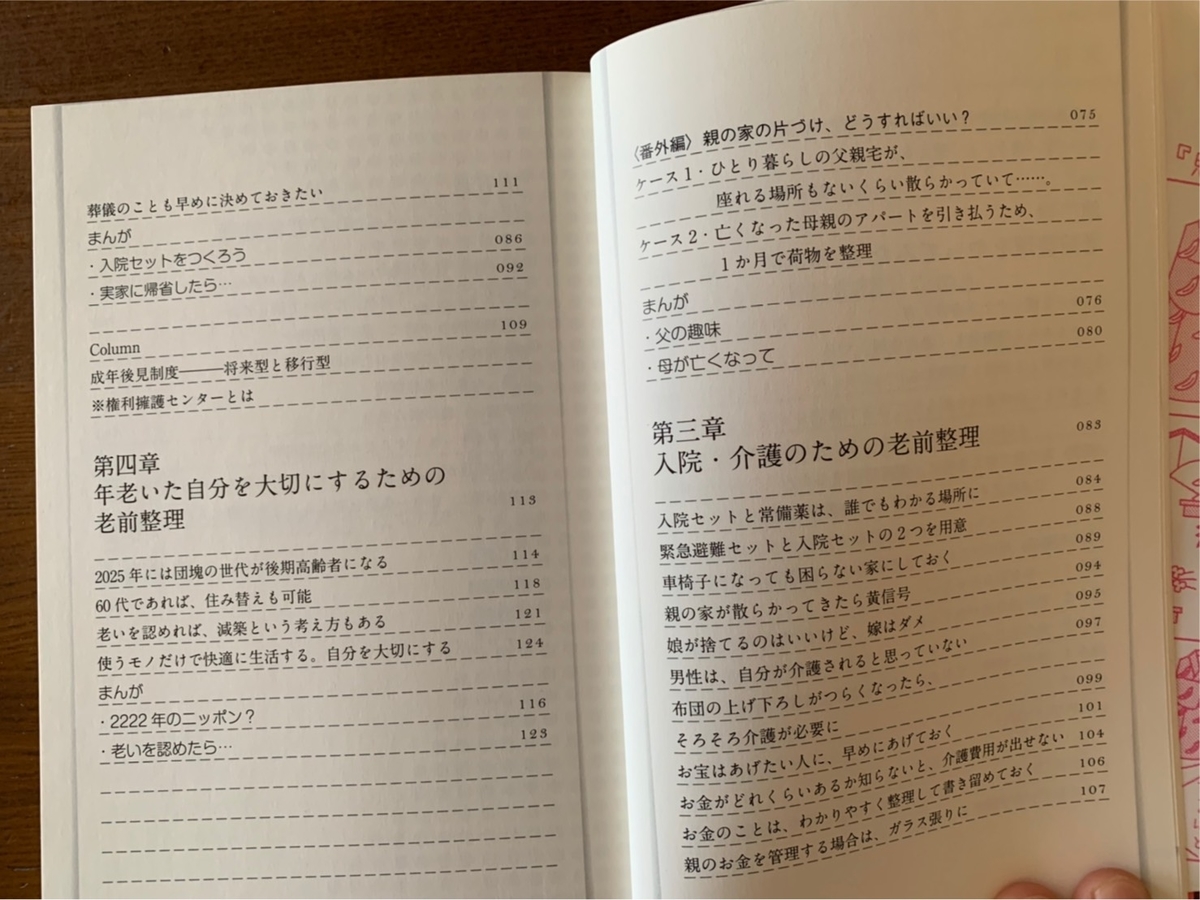 〈番外編〉親の家の片づけ、どうすればいい？ 075
ケース1・ひとり暮らしの父親宅が、
座れる場所もないくらい散らかっていて……。
ケース2・亡くなった母親のアパートを引き払うため、
1か月で荷物を整理
まんが
・父の趣味 076
・母が亡くなって 080
第三章
入院・介護のための老前整理 083
入院セットと常備薬は、誰でもわかる場所に 084
緊急避難セットと入院セットの2つを用意 088
車椅子になっても困らない家にしておく 089
親の家が散らかってきたら黄信号 094
娘が捨てるのはいいけど、嫁はダメ 095
男性は、自分が介護されると思っていない 097
布団の上げ下ろしがつらくなったら、
そろそろ介護が必要に 099
お宝はあげたい人に、早めにあげておく 101
お金がどれくらいあるか知らないと、介護費用が出せない 104
お金のことは、わかりやすく整理して書き留めておく 106
親のお金を管理する場合は、ガラス張りに 107
葬儀のことも早めに決めておきたい 111
まんが
・入院セットをつくろう 086
・実家に帰省したら… 092
Column 109
成年後見制度———将来型と移行型
※権利擁護センターとは
第四章
年老いた自分を大切にするための
老前整理 113
2025年には団塊の世代が後期高齢者になる 114
60代であれば、住み替えも可能 118
老いを認めれば、減築という考え方もある 121
使うモノだけで快適に生活する。自分を大切にする 124
まんが
・2222年のニッポン？ 116
・老いを認めたら… 123